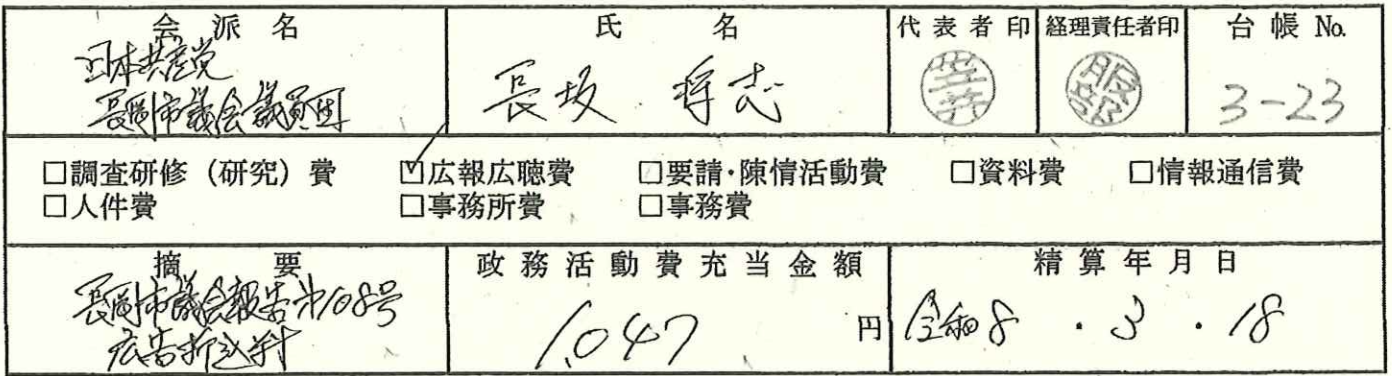 会派名 氏名 代表者印 経理責任者印 台帳No.
日本共産党
長岡市議会議員団
長坂 将志
服部
3-23
□調査研修（研究）費 ☑広報広聴費 □要請・陳情活動費 □資料費 □情報通信費
□人件費 □事務所費 □事務費
摘要 政務活動費充当金額 精算年月日
長岡市議会報告第108号
広告折込料
1,047 円 令和8・3・18